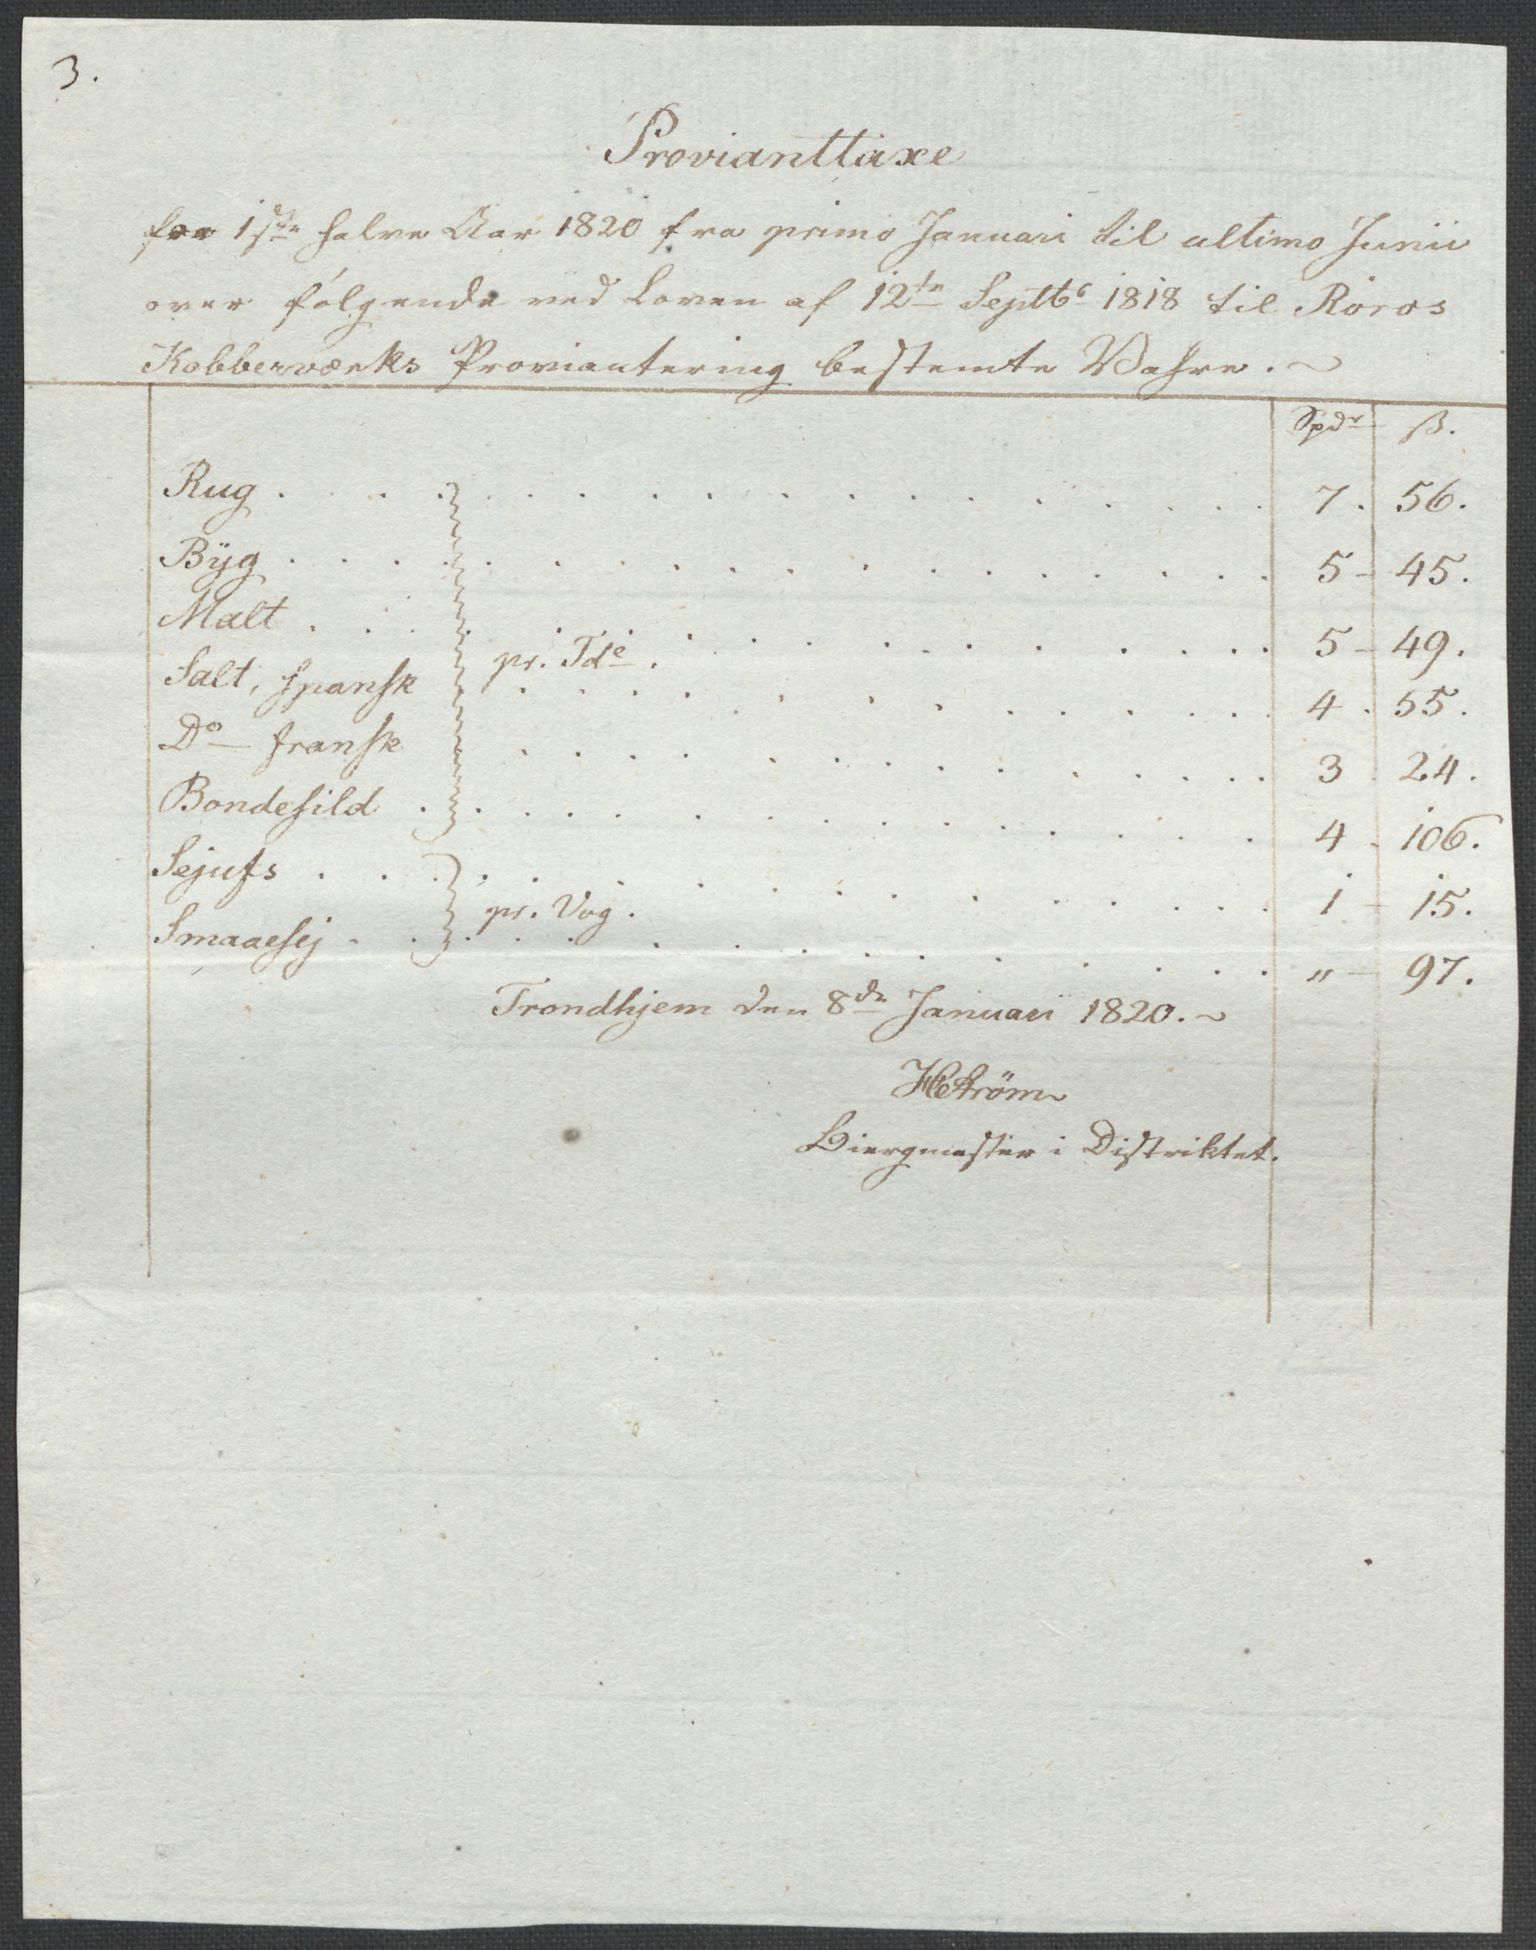 3.
Provianttaxe
for 1ste halve Aar 1820 fra primo Januari til ultimo Junii
over følgende ved Loven af 12te Septbr 1818 til Røros
Kobberværks Proviantering bestemte Vahre. ~
Spdr ß.
Rug . . . . 7. 56.
Byg . . . . 5 - 45.
Malt . . . . 5 - 49.
pr. Tde.
Salt, spansk . . . . 4. 55.
Do - fransk . . . . 3. 24.
Bondesild . . . . 4 - 106.
Sejufs . . . . 1 - 15.
pr. Vog.
Smaaesej . . . . " - 97.
Trondhjem den 8de Januari 1820. ~
HStröm
Biergmester i Distriktet.